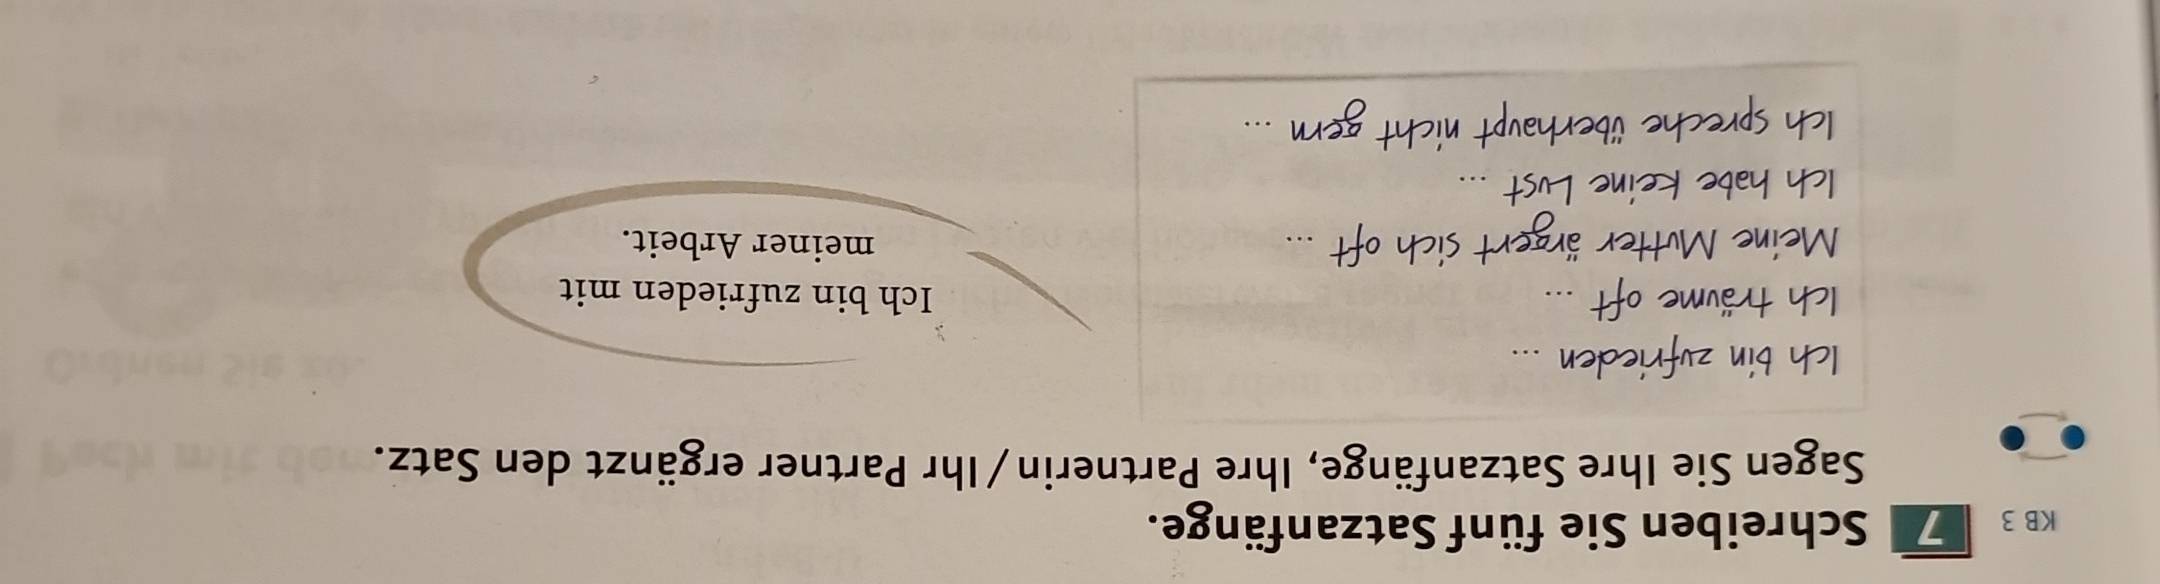 KB 3 7 Schreiben Sie fünf Satzanfänge.
Sagen Sie Ihre Satzanfänge, Ihre Partnerin / Ihr Partner ergänzt den Satz.
Ich bin zufrieden ...
Ich träume oft ...
Meine Mutter ärgert sich oft ...
Ich habe keine Lust ...
Ich spreche überhaupt nicht gern ...
Ich bin zufrieden mit
meiner Arbeit.